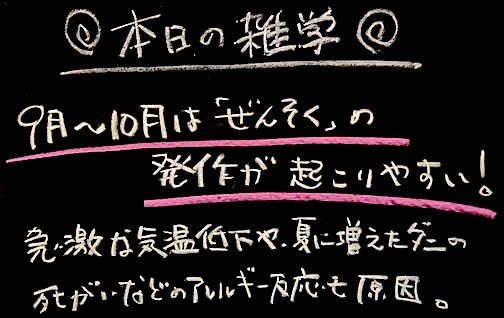 ◎ 本日の雑学 ◎
9月〜10月は「ぜんそく」の
発作が起こりやすい!
急激な気温低下や、夏に増えたダニの
死がいなどのアレルギー反応も原因。